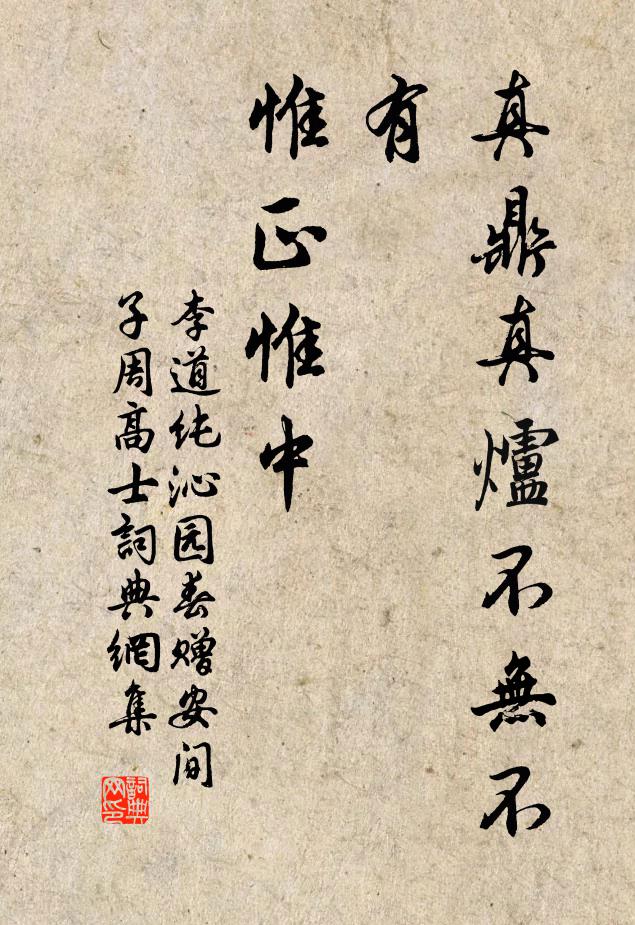 真鼎真爐不無不
有
惟正惟中
李道纯沁园春赠安闲
子周高士詞典網集
詞典
网印